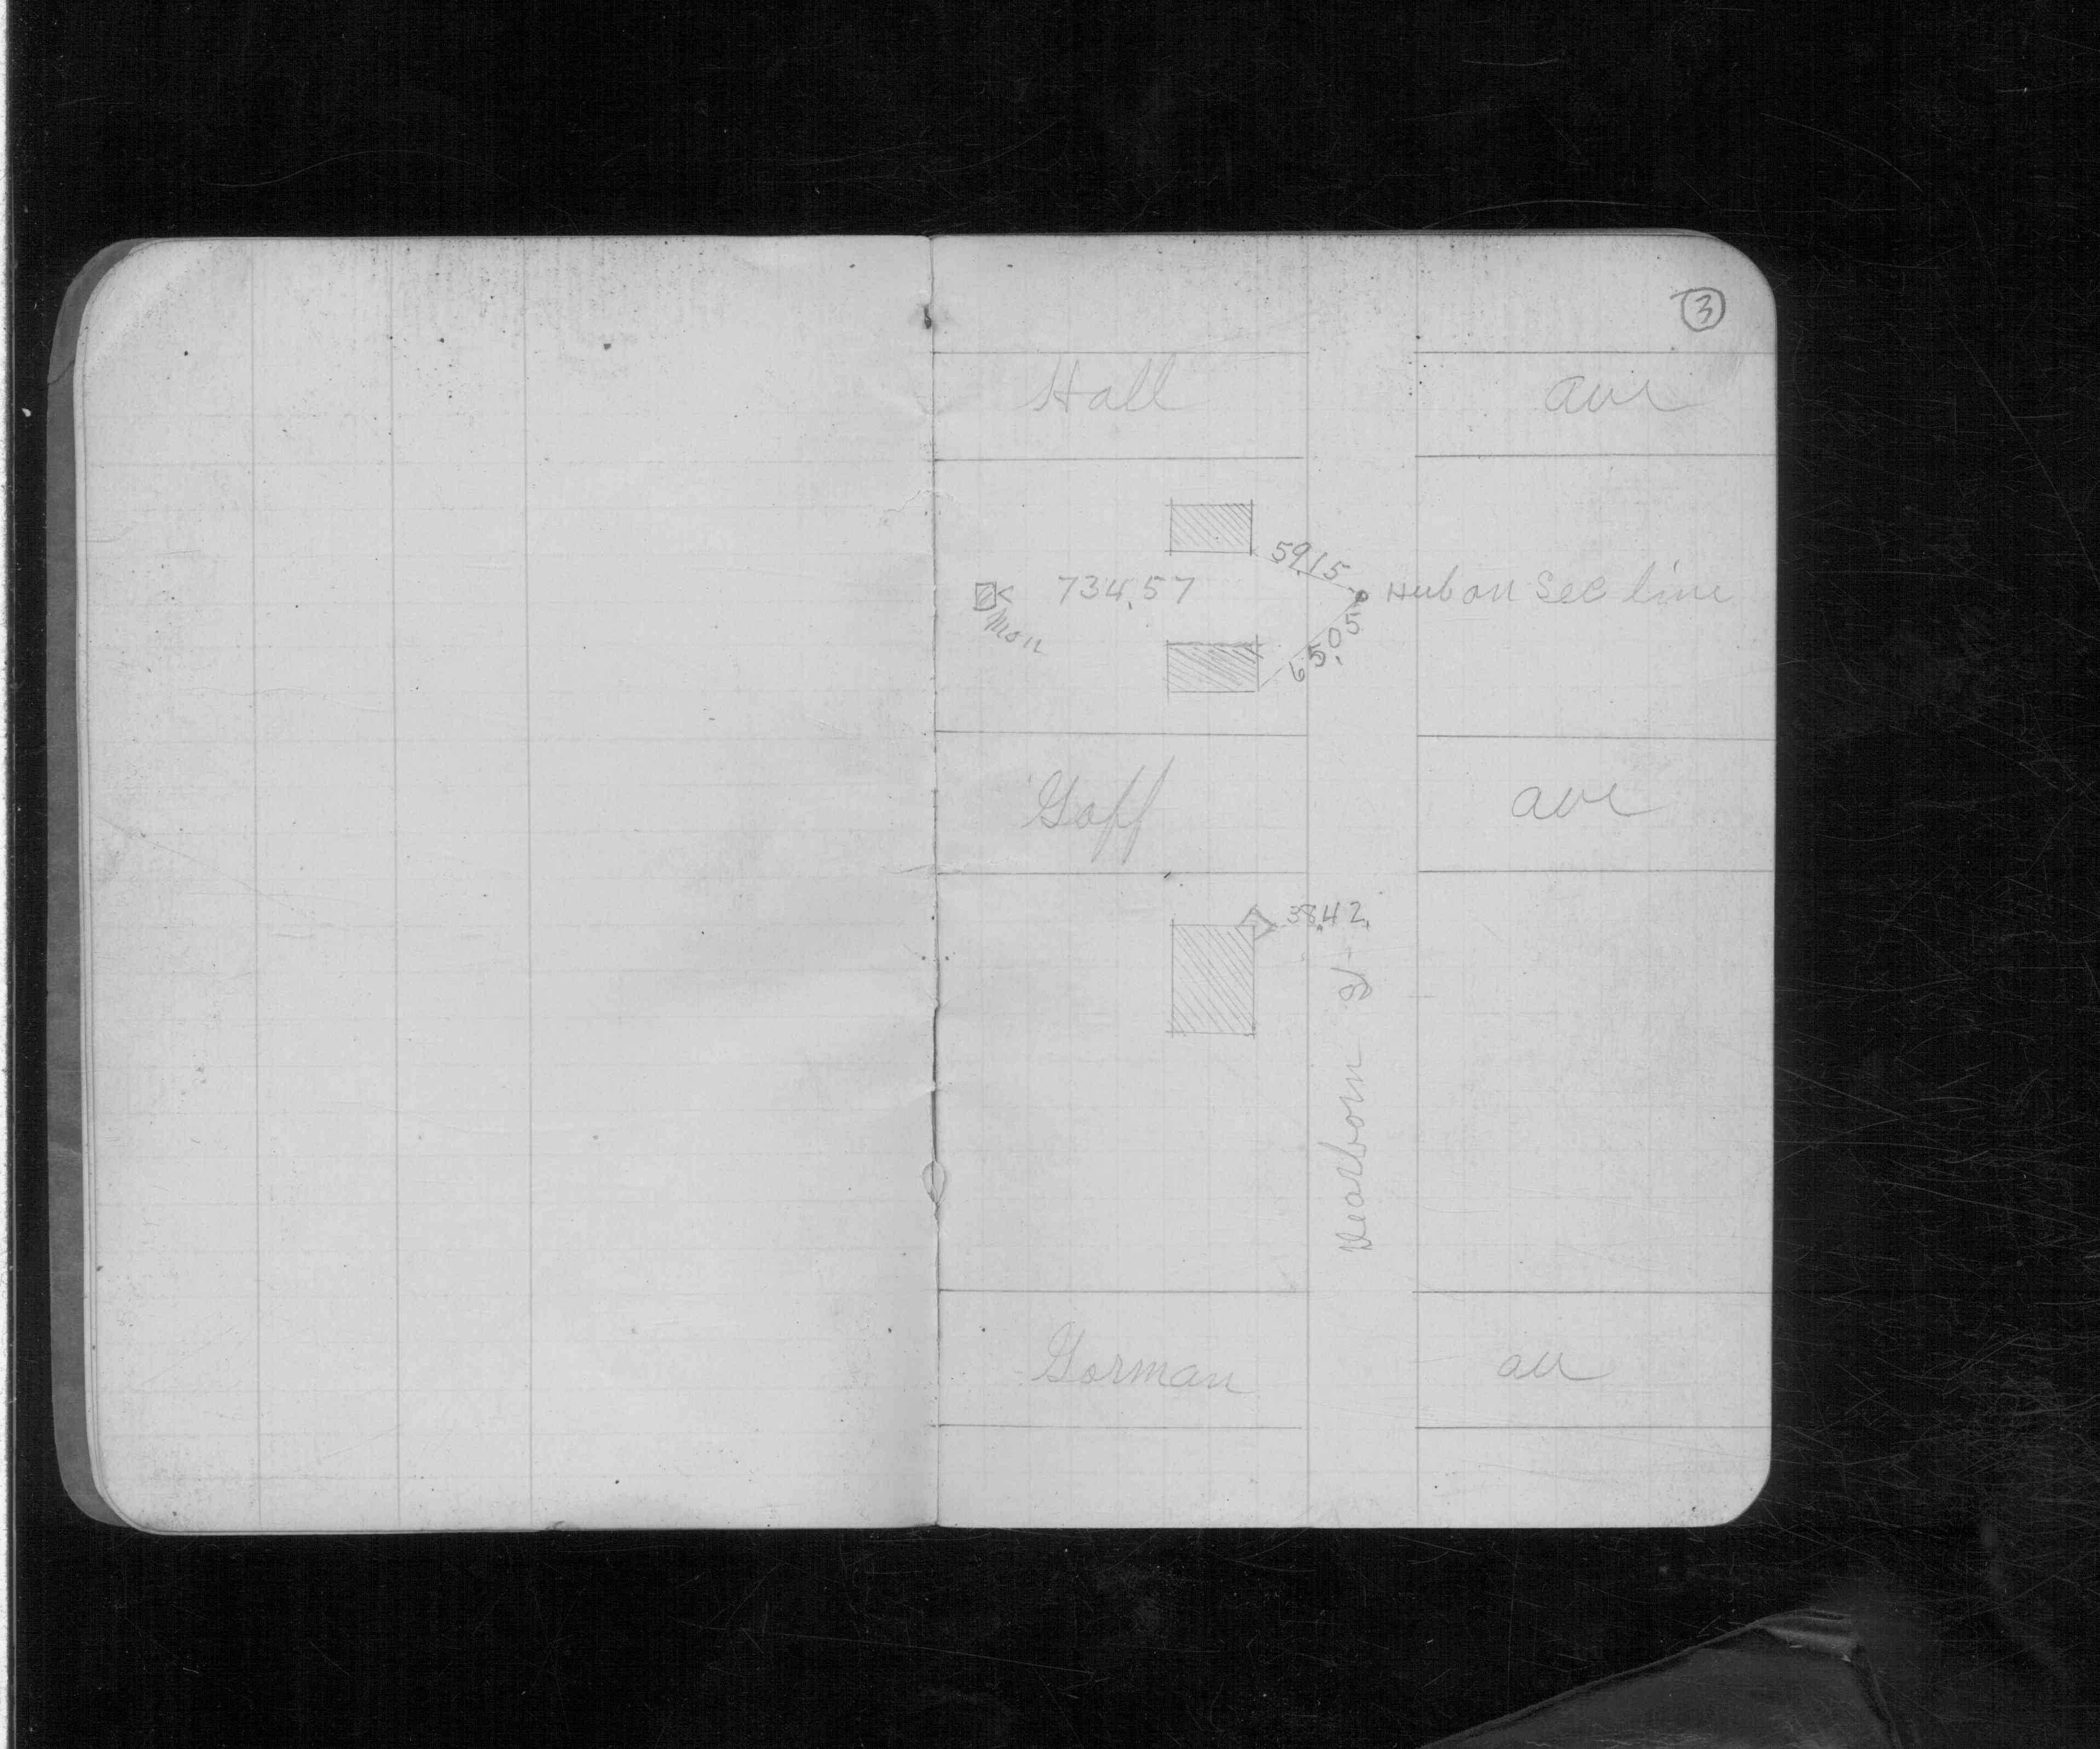 3
Hall ave
59.15
734.57
Hub on Sec line
Mon
65.05
Goff ave
38.42
Dearborn St
Gorman ave